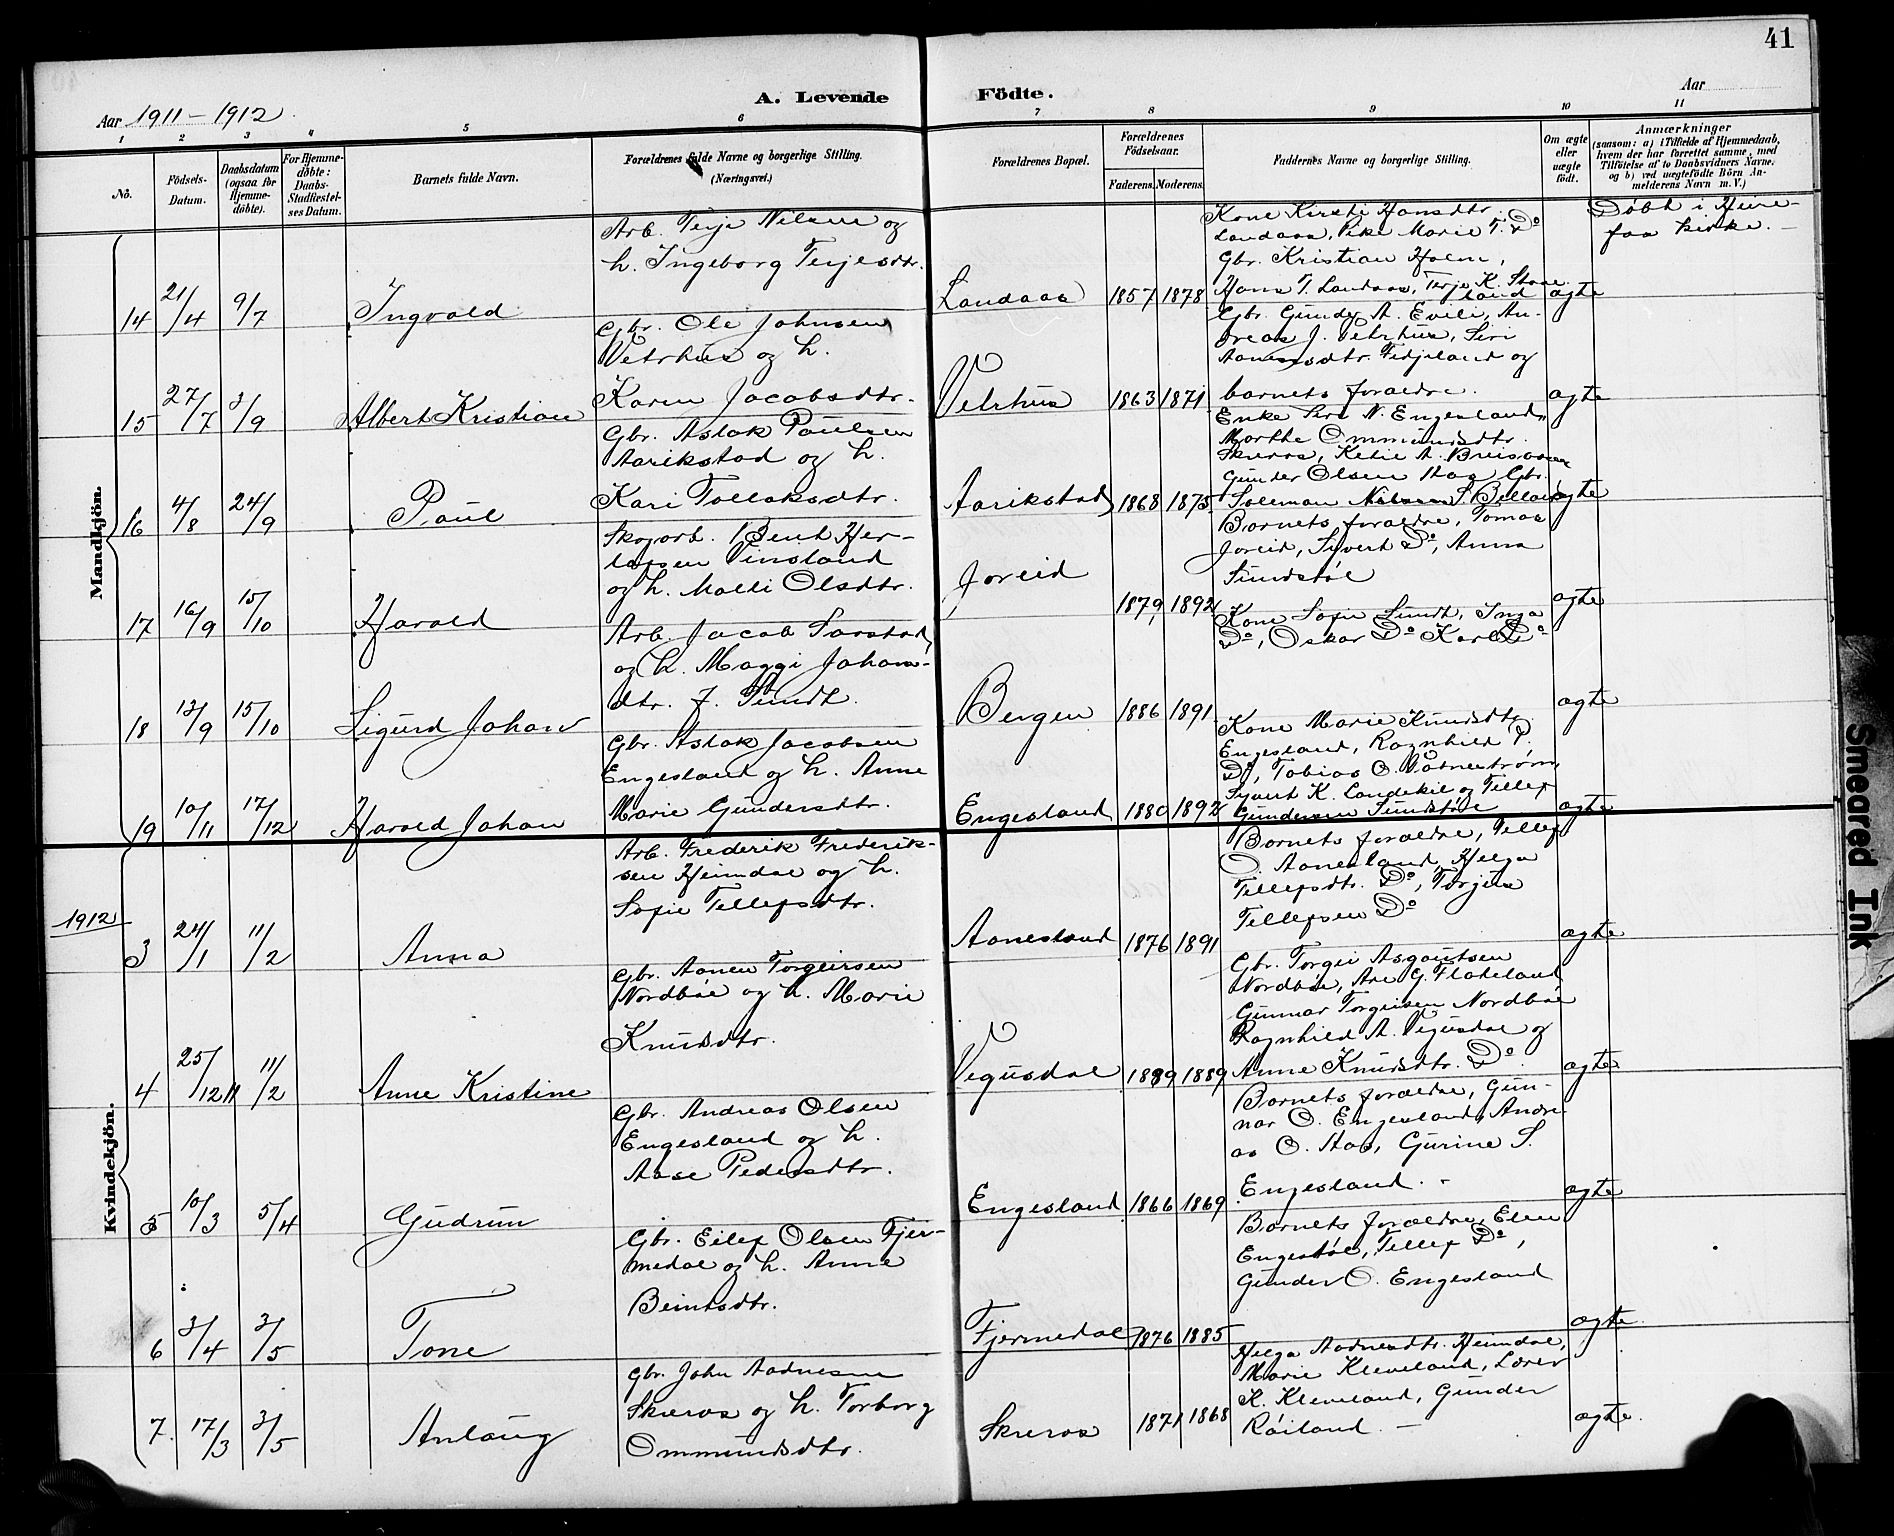 41
Aar 1911-1912.
A. Levende Födte.
Aar
1 2 3 4 5 6 7 8 9 10 11
No.
Födsels-Datum.
Daabsdatum (ogsaa for Hjemme-döbte).
For Hjemme-döbte: Daabs-Stadfæstel-ses Datum.
Barnets fulde Navn.
Forældrenes fulde Navne og borgerlige Stilling. (Næringsvei.)
Forældrenes Bopæl.
Forældrenes Födselsaar.
Faderens. Moderens.
Faddernes Navne og borgerlige Stilling.
Om ægte eller uægte födt.
Anmærkninger
(saasom: a) i Tilfælde af Hjemmedaab, hvem der har forrettet samme, med Tilföielse af to Daabsvidners Navne; og b) ved uægtefödte Börn Anmelderens Navn m. V.)
Mandkjön.
14 21/4 9/7 Ingvald
Arb. Terje Nilsen og
h. Ingeborg Terjesdtr.
Landaas 1857 1878
Kone Kirsti Hansdtr.
Landaas, Pike Marie T. Do
Gbr. Kristian Holm,
Hans T. Landaas, Terje K. Skaaeland
ægte
Döbt i Herefos kirke. -
15 27/7 3/9 Albert Kristian
Gbr. Ole Johnsen
Vetrhus og h.
Karen Jacobsdtr.
Vetrhus 1863 1871
Gbr. Gunder A. Eveli, Andreas J. Vetrhus, Siri
Aanensdtr. Fidjeland og
barnets foraeldre.
ægte
16 4/8 24/9 Paul
Gbr. Aslak Paulsen
Aarikstad og h.
Kari Tollaksdtr.
Aarikstad 1868 1875
Enke Siri N. Engesland,
Marthe Ommundsdtr.
Skreros, Ketie A.
Gunder Olsen Haa, Gbr.
Soleman
ægte
17 16/9 15/10 Harald
Skogarb. Bent Herlofsen Vinsland
og h. Malli Olsdtr.
Joreid 1879 1892
Barnets foraeldre, Tomas
Joreid, Syvert Do, Anna
Sundstøl
ægte
18 13/9 15/10 Sigurd Johan
Arb. Jacob Sarstad
og h. Maggi Johansdtr. f. Sundt.
Bergen 1886 1891
Kone Sofie Sundt, Inga
Do, Oskar Do Karl Do
ægte
19 10/11 17/12 Harald Johan
Gbr. Aslak Jacobsen
Engesland og h. Anne
Marie Gundersdtr.
Engesland 1880 1892
Kone Marie Knudsdtr.
Engesland, Ragnhild P.
Do, Tobias O. Vatnestrøm,
Syvert K. Landekil og Tellef
Gundersen Sundstøl
ægte
Kvindekjön.
1912
3 24/1 11/2 Anna
Arb. Frederik Frederiksen Heimdal og h.
Sofie Tellefsdtr.
Aanesland 1876 1891
Barnets foraeldre, Tellef
O. Aanesland, Helga
Tellefsdtr. Do, Torjus
Tellefsen Do
ægte
4 25/12 11 11/2 Anne Kristine
Gbr. Aanen Torgeirsen
Nordbøe og h. Marie
Knudsdtr.
Vegusdal 1889 1889
Gbr. Torgei Asgautsen
Nordbøe, Are G. Flateland
Gunnar Torgeisen Nordbøe
Ragnhild A. Vegusdal og
Anne Knudsdtr. Do
ægte
5 10/3 5/4 Gudrun
Gbr. Andreas Olsen
Engesland og h.
Aase Pedersdtr.
Engesland 1866 1869
Barnets foraeldre, Gunnar O. Engesland, Andreas O. Haa, Gurine S.
Engesland. -
ægte
6 3/4 3/5 Tone
Gbr. Eilef Olsen Fjermedal og h. Anne
Beintsdtr.
Fjermedal 1876 1885
Barnets foraeldre, Elen
Engestøl, Tellef Do,
Gunder O. Engesland
ægte
7. 17/3 3/5 Anlaug
Gbr. John Aadnesen
Skreros og h. Torborg
Ommundsdtr.
Skreros 1871 1868
Helga Aadnesdtr. Heimdal,
Marie Kleveland, Lærer
K. Kleveland, Gunder
Røiland. -
ægte.
Smeared Ink